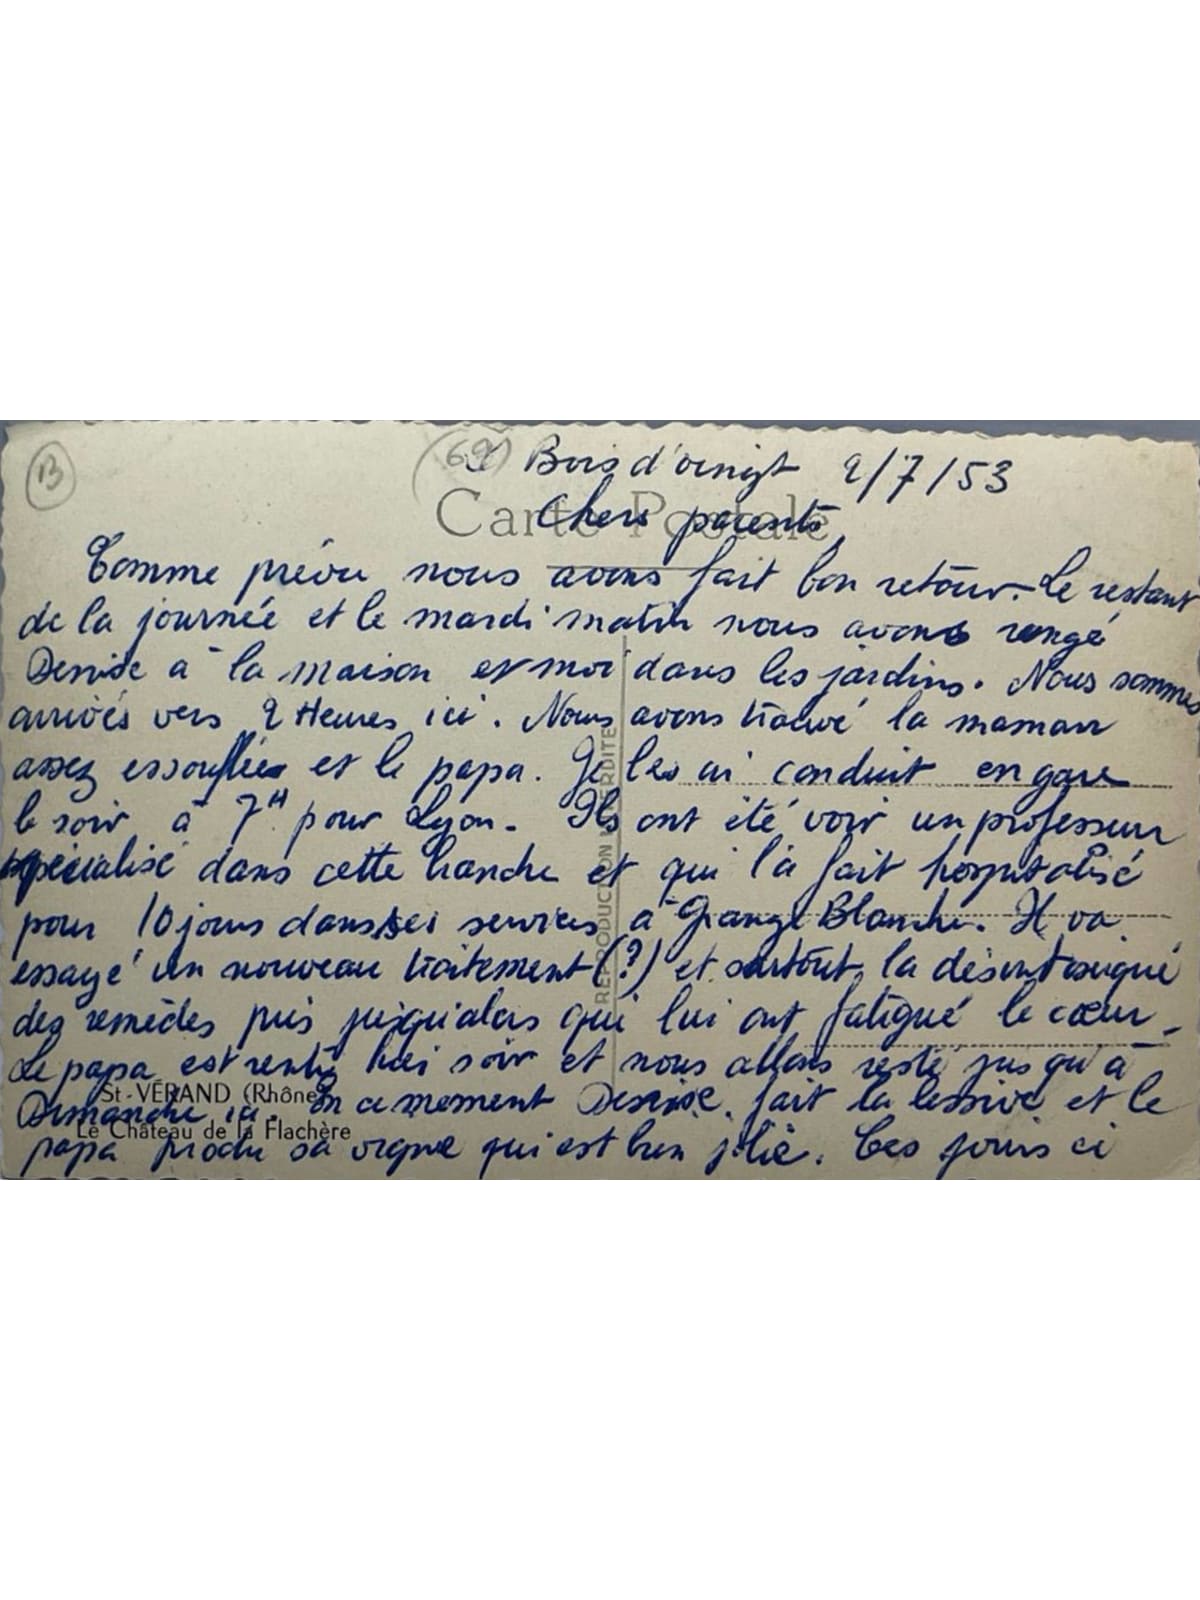 B
(69)
Bois d'oingt 2/7/53
Carte Postale
Chers parents,
Comme prévu nous avons fait bon retour. Le restant
de la journée et le mardi matin nous avons rangé
Denise à la maison et moi dans les jardins. Nous sommes
arrivés vers 2 Heures ici. Nous avons trouvé la maman
assez essouflée et le papa. Je les ai conduit en gare
le soir à 7H pour Lyon. Ils ont été voir un professeur
spécialisé dans cette branche et qui l'a fait hospitalisé
pour 10 jours dans ses services à Grange Blanche. Il va
essayé un nouveau traitement (?) et surtout la désintoxiqué
des remèdes pris jusqu'alors qui lui ont fatigué le cœur.
Le papa est rentré hier soir et nous allons resté jusqu'à
St-VÉRAND (Rhône)
Dimanche ici. En ce moment Denise fait la lessive et le
Le Château de la Flachère
papa sa vigne qui est bien jolie. Ces jours ci
REPRODUCTION INTERDITE